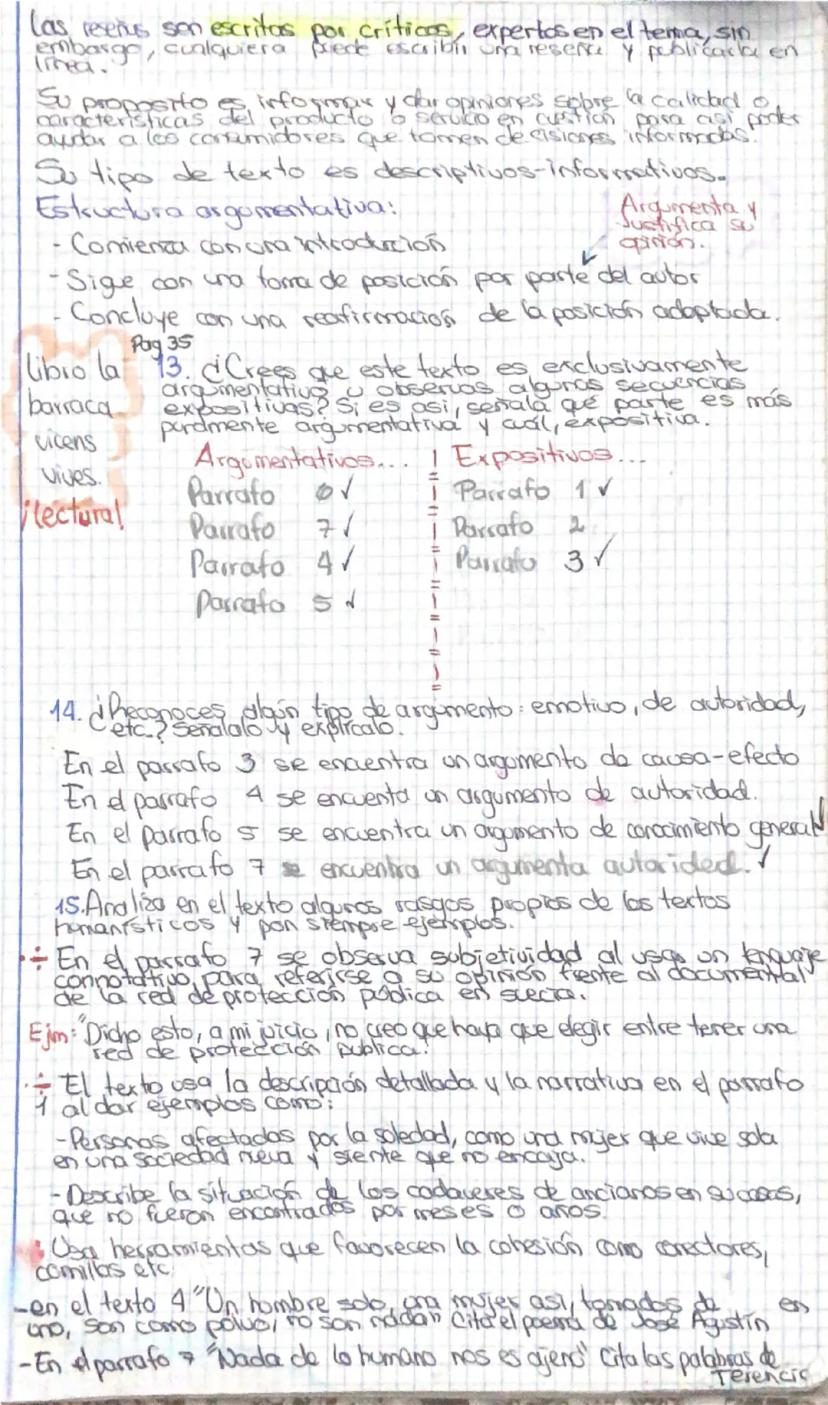 Las reseñas son escritas por críticos, expertos en el tema, sin
embargo, cualquiera puede escribir una reseña y publicarla en
línea.
Su proposito es informar y dar opiniones sobre la calidad o
características del producto o servicio en cuestión para así poder
ayudar a los consumidores que tomen decisiones informadas.
Su tipo de texto es descriptivos-informativos.
Estructura argumentativa:
Argumenta y
Justifica su
opinión.
- Comienza con una introducción
- Sige con una toma de posición por parte del autor
- Concluye con una reafirmación de la posición adoptada.
Pag 35
libro la
barraca
vicens
vives.
¡lectura!
13. ¿Crees que este texto es exclusivamente
argumentativo u observas algunas secuencias
expositivas? Si es asi, señala qué parte es más
puramente argumentativa y cuál, expositiva.
Argumentativos... Expositivos...
Parrafo 6 ✓ Parrafo 1 ✓
Parrafo 7 ✓ Parrafo 2
Parrafo 4 ✓ Parrafo 3 ✓
Parrafo 5 ✓
14. ¿Reconoces algún tipo de argumento: emotivo, de autoridad,
etc.? Señalalo y explícalo.
En el parrafo 3 se encuentra un argumento de causa-efecto
En el parrafo 4 se encuenta un argumento de autoridad.
En el parrafo 5 se encuentra un argumento de conocimiento general ✓
En el parrafo 7 se encuentra un argumenta autorided. ✓
15. Analiza en el texto algunos rasgos propios de los textos
humanísticos y pon siempre ejemplos.
÷ En el parrafo 7 se observa subjetividad al usar un lenguaje
connotativo para referirse a su opinión frente al documental
de la red de protección pública en suecia.
Ejm: "Dicho esto, a mi juicio, no creo que haya que elegir entre tener una
red de protección publica."
÷ El texto usa la descripción detallada y la narrativa en el parrafo
1 al dar ejemplos como:
- Personas afectadas por la soledad, como una mujer que vive sola
en una sociedad nueva y siente que no encaja.
- Describe la situación de los cadaveres de ancianos en su casas,
que no fueron encontrados por meses o años.
Usa herramientas que favorecen la cohesión como conectores,
comillas etc.
- en el texto 4 "Un hombre solo, una mujer así, tomados de en
uno, son como polvo, no son nada" Cita el poema de José Agustín
- En el parrafo 7 "Nada de lo humano nos es ajeno" Cita las palabras de
Terencio